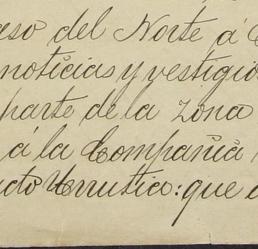 eso del Norte á
noticias y vestigio
parte de la zona
á la Compañia
cto Urrustia: que